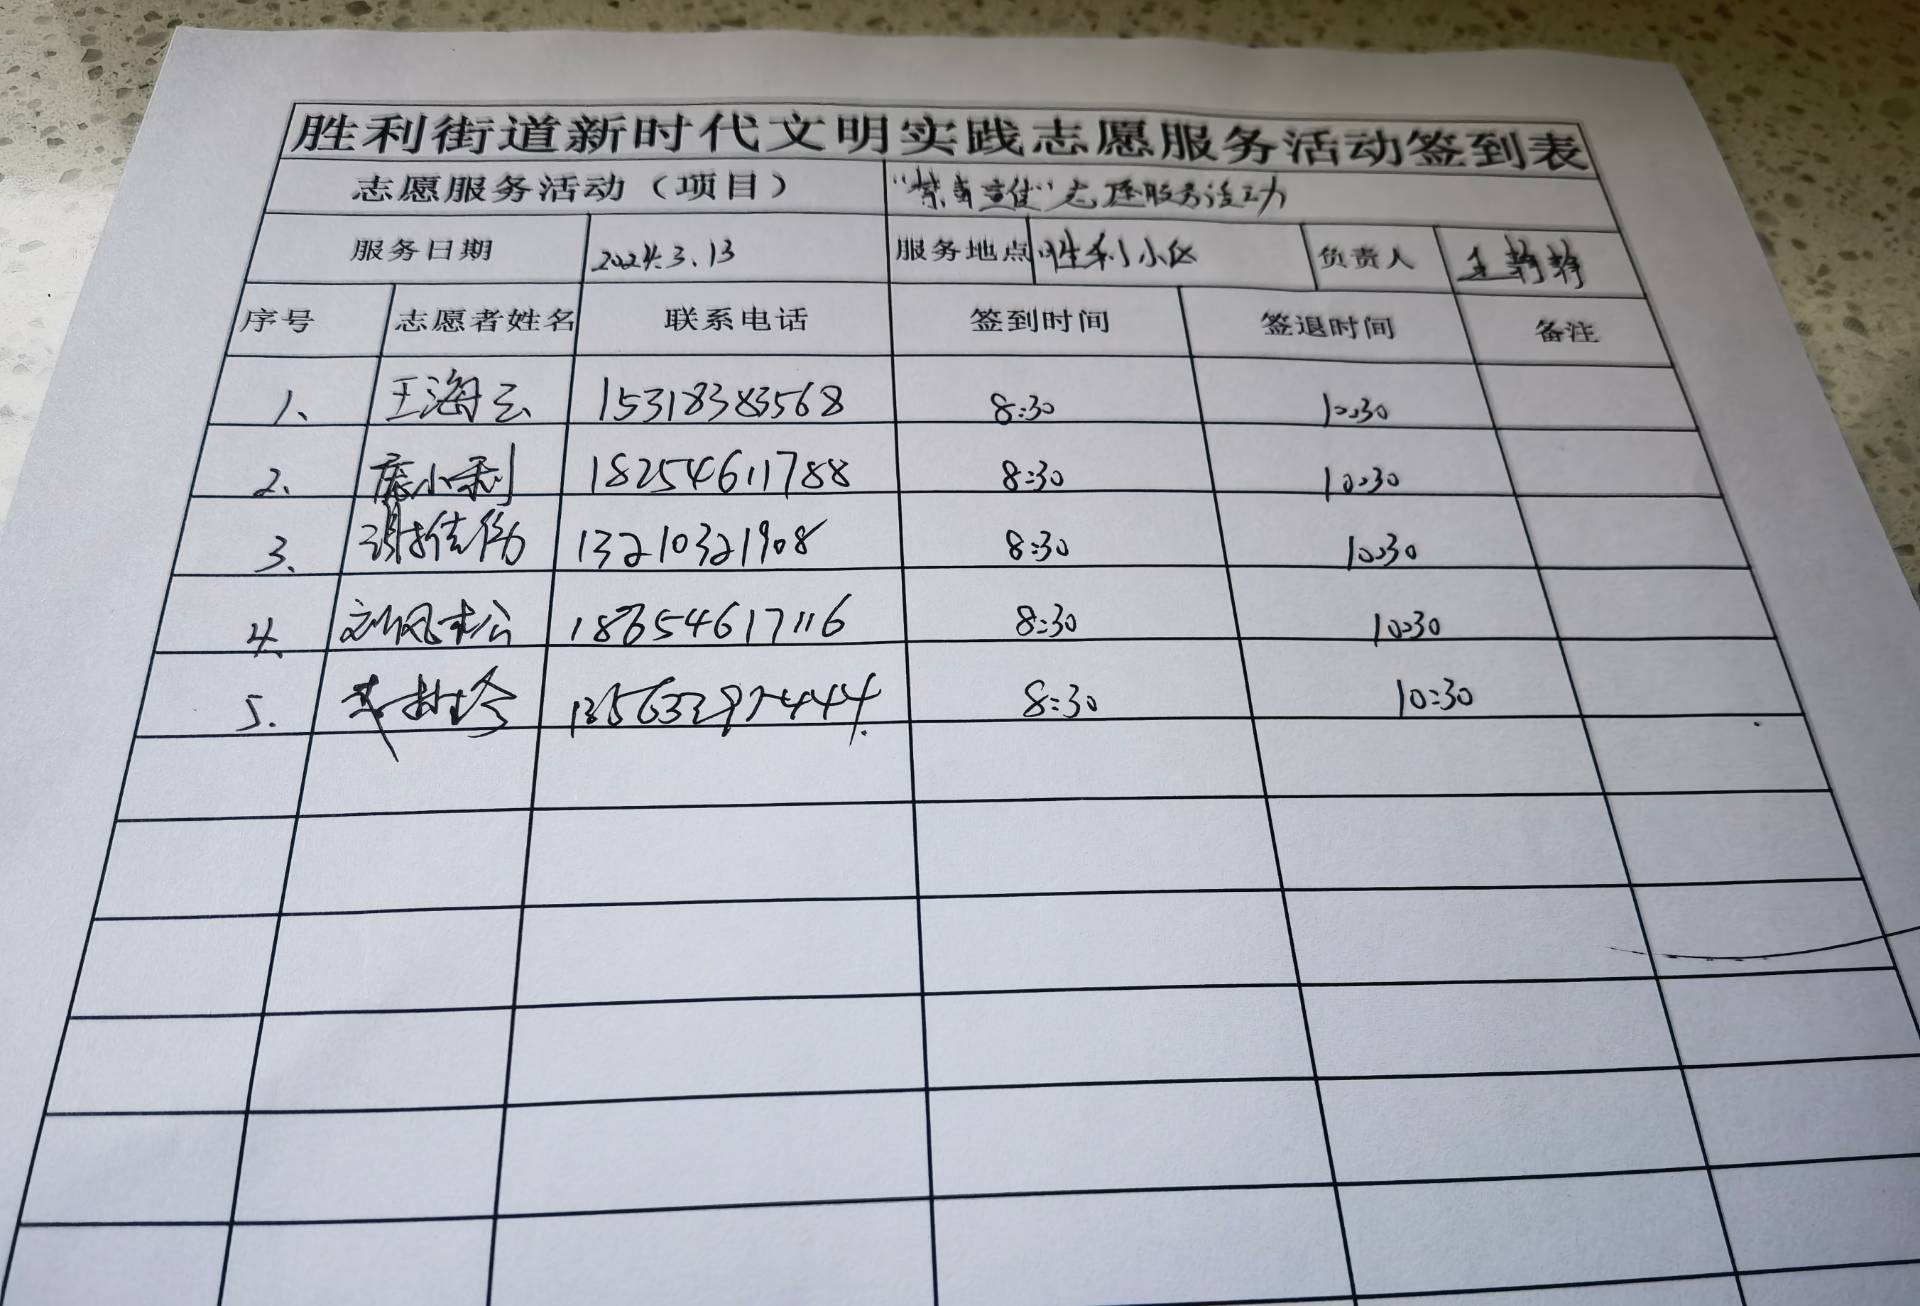 胜利街道新时代文明实践志愿服务活动签到表
志愿服务活动（项目） “禁毒宣传”志愿服务活动
服务日期 2024.3.13 服务地点 胜利小区 负责人 王静静
序号 志愿者姓名 联系电话 签到时间 签退时间 备注
1、 王海云 15318383568 8:30 10:30
2、 庞小利 18254611788 8:30 10:30
3、 谢 13210321908 8:30 10:30
4、 刘凤松 18654617116 8:30 10:30
5. 8:30 10:30